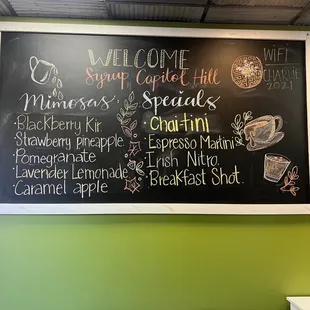 WELCOME
Syrup Capitol Hill
WiFi
CHARLIE
2021
Mimosas
·Blackberry Kir
·Strawberry pineapple
·Pomegranate
·Lavender Lemonade
·Caramel apple
Specials
·Chai-tini
·Espresso Martini
·Irish Nitro.
·Breakfast Shot.